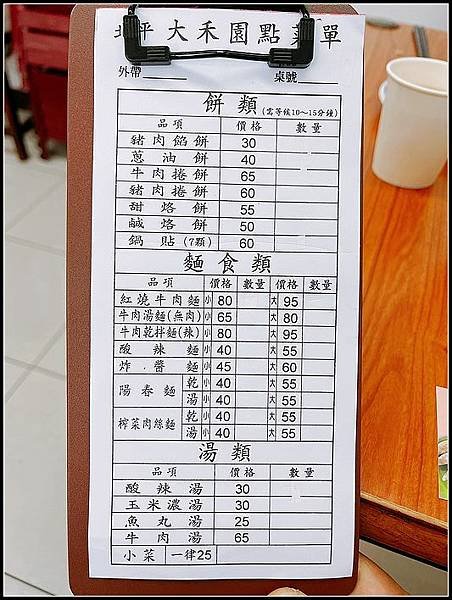 北平大禾園點菜單
外帶 桌號
餅類(需等候10~15分鐘)
品項 價格 數量
豬肉餡餅 30
蔥油餅 40
牛肉捲餅 65
豬肉捲餅 60
甜烙餅 55
鹹烙餅 50
鍋貼(7顆) 60
麵食類
品項 價格 數量 價格 數量
紅燒牛肉麵 小 80 大 95
牛肉湯麵(無肉) 小 65 大 80
牛肉乾拌麵(辣) 小 80 大 95
酸辣麵 小 40 大 55
炸.醬麵 小 45 大 60
陽春麵 乾 小 40 大 55
湯 小 40 大 55
榨菜肉絲麵 乾 小 40 大 55
湯 小 40 大 55
湯類
品項 價格 數量
酸辣湯 30
玉米濃湯 30
魚丸湯 25
牛肉湯 65
小菜 一律25